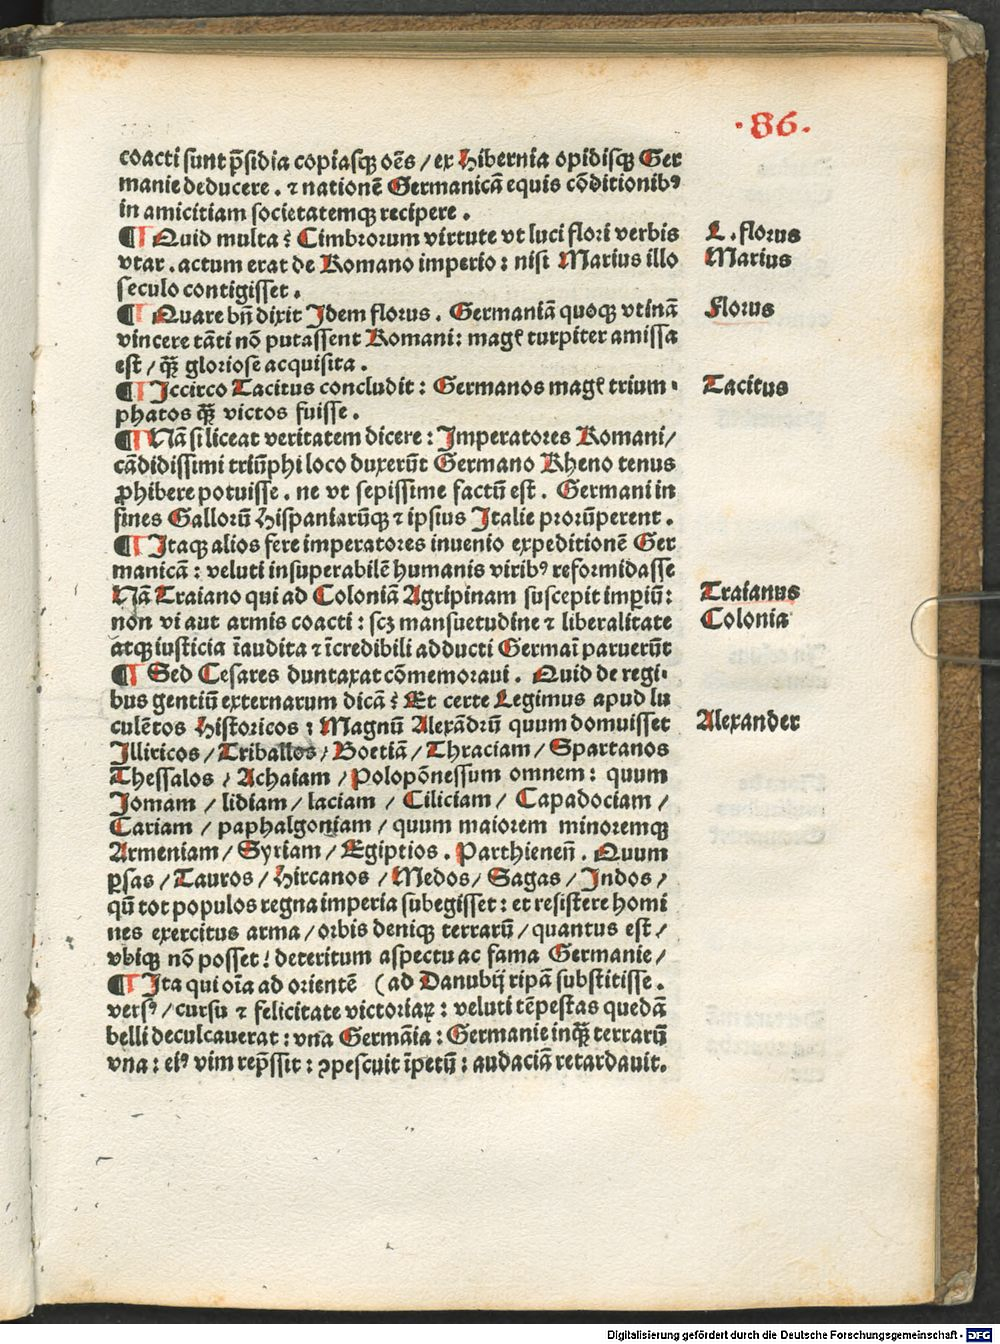 ·86·
coacti sunt p̄sidia copiasqꝫ oēs / ex Hibernia opidisqꝫ Ger
manie deducere . ⁊ nationē Germanicā equis cōditionibꝰ
in amicitiam societatemqꝫ recipere .
¶ Quid multa ⁊ Cimbrorum virtute vt luci flori verbis
L . florus
vtar . actum erat de Romano imperio : nisi Marius illo
Marius
seculo contigisset .
¶ Quare bn̄ dixit Idem florus . Germaniā quoqꝫ vtinā
Florus
vincere tāti nō putassent Romani : magꝭ turpiter amissa
est / qꝫ̄ gloriose acquisita .
¶ Iccirco Tacitus concludit : Germanos magꝭ trium⸗
Tacitus
phatos qꝫ̄ victos fuisse .
¶ Nā si liceat veritatem dicere : Imperatores Romani /
cādidissimi triūphi loco duxerūt Germano Rheno tenus
ꝓhibere potuisse . ne vt sepissime factū est . Germani in
fines Gallorū Hispaniarūqꝫ ⁊ ipsius Italie prorūperent .
¶ Itaqꝫ alios fere imperatores inuenio expeditionē Ger
manicā : veluti insuperabilē humanis viribꝰ reformidasse
Nā Traiano qui ad Coloniā Agripinam suscepit imꝑiū :
Traianus
non vi aut armis coacti : scꝫ mansuetudine ⁊ liberalitate
Colonia
atqꝫ iusticia īaudita ⁊ īcredibili adducti Germaī paruerūt
¶ Sed Cesares duntaxat cōmemoraui . Quid de regi⸗
bus gentiū externarum dicā ? Et certe Legimus apud lu
culētos Historicos ; Magnū Alexādrū quum domuisset
Alexander
Illiricos / Triballos / Boetiā / Thraciam / Spartanos
Thessalos / Achaiam / Polopōnessum omnem : quum
Jomam / lidiam / laciam / Ciliciam / Capadociam /
Cariam / paphalgoniam / quum maiorem minoremqꝫ
Armeniam / Syriam / Egiptios . Parthienen̄ . Quum
ꝑsas / Tauros / Hircanos / Medos / Sagas / Indos /
qū tot populos regna imperia subegisset : et resistere homi
nes exercitus arma / orbis deniqꝫ terrarū / quantus est /
vbiqꝫ nō posset : deteritum aspectu ac fama Germanie /
¶ Ita qui oīa ad orientē (ad Danubij ripā substitisse .
versꝰ / cursu ⁊ felicitate victoriaꝝ : veluti tēpestas quedā
belli deculcauerat : vna Germāia : Germanie inqꝫ̄ terrarū
vna : eiꝰ vim rep̄ssit : ꝯpescuit īpetū : audaciā retardauit.
Digitalisierung gefördert durch die Deutsche Forschungsgemeinschaft - DFG